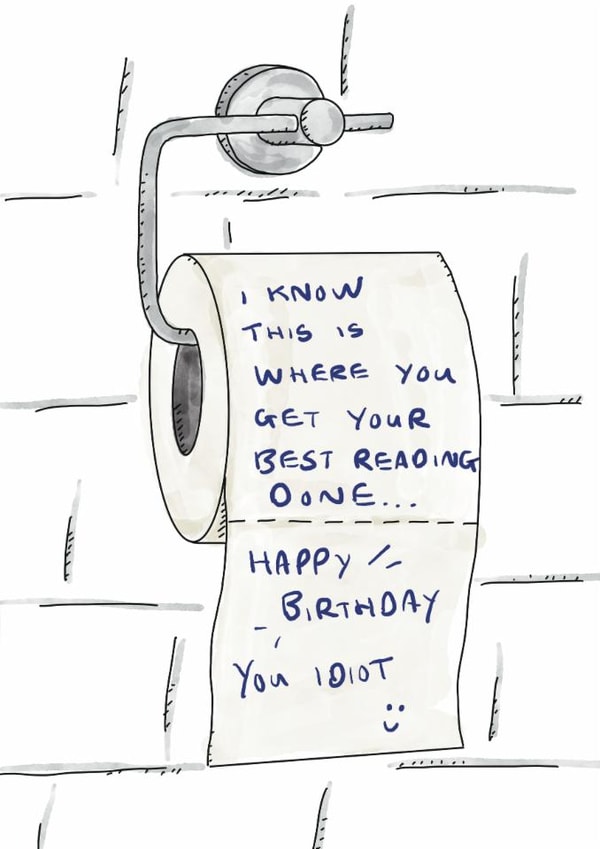 I KNOW
THIS IS
WHERE YOU
GET YOUR
BEST READING
DONE...
HAPPY
BIRTHDAY
YOU IDIOT